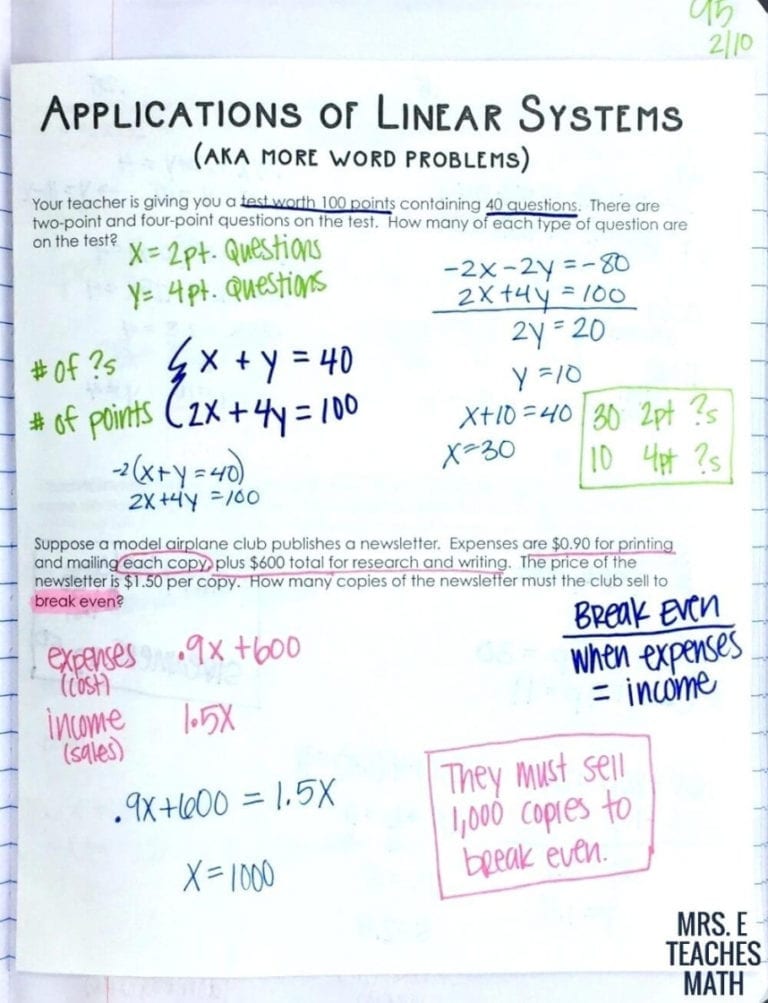 95
2/10
APPLICATIONS OF LINEAR SYSTEMS
(AKA MORE WORD PROBLEMS)
Your teacher is giving you a test worth 100 points containing 40 questions. There are
two-point and four-point questions on the test. How many of each type of question are
on the test?
X = 2pt. Questions
Y = 4pt. Questions
# of ?s
x + y = 40
# of points
2x + 4y = 100
-2(x+y=40)
2x+4y =100
-2x-2y=-80
2x+4y =100
2y=20
y =10
x+10=40
x=30
30 2pt ?s
10 4pt ?s
Suppose a model airplane club publishes a newsletter. Expenses are $0.90 for printing
and mailing each copy, plus $600 total for research and writing. The price of the
newsletter is $1.50 per copy. How many copies of the newsletter must the club sell to
break even?
Break Even
when expenses
= income
expenses .9x+600
(cost)
income 1.5x
(sales)
.9x+600 = 1.5x
x=1000
They must sell
1,000 copies to
break even.
MRS. E
TEACHES
MATH